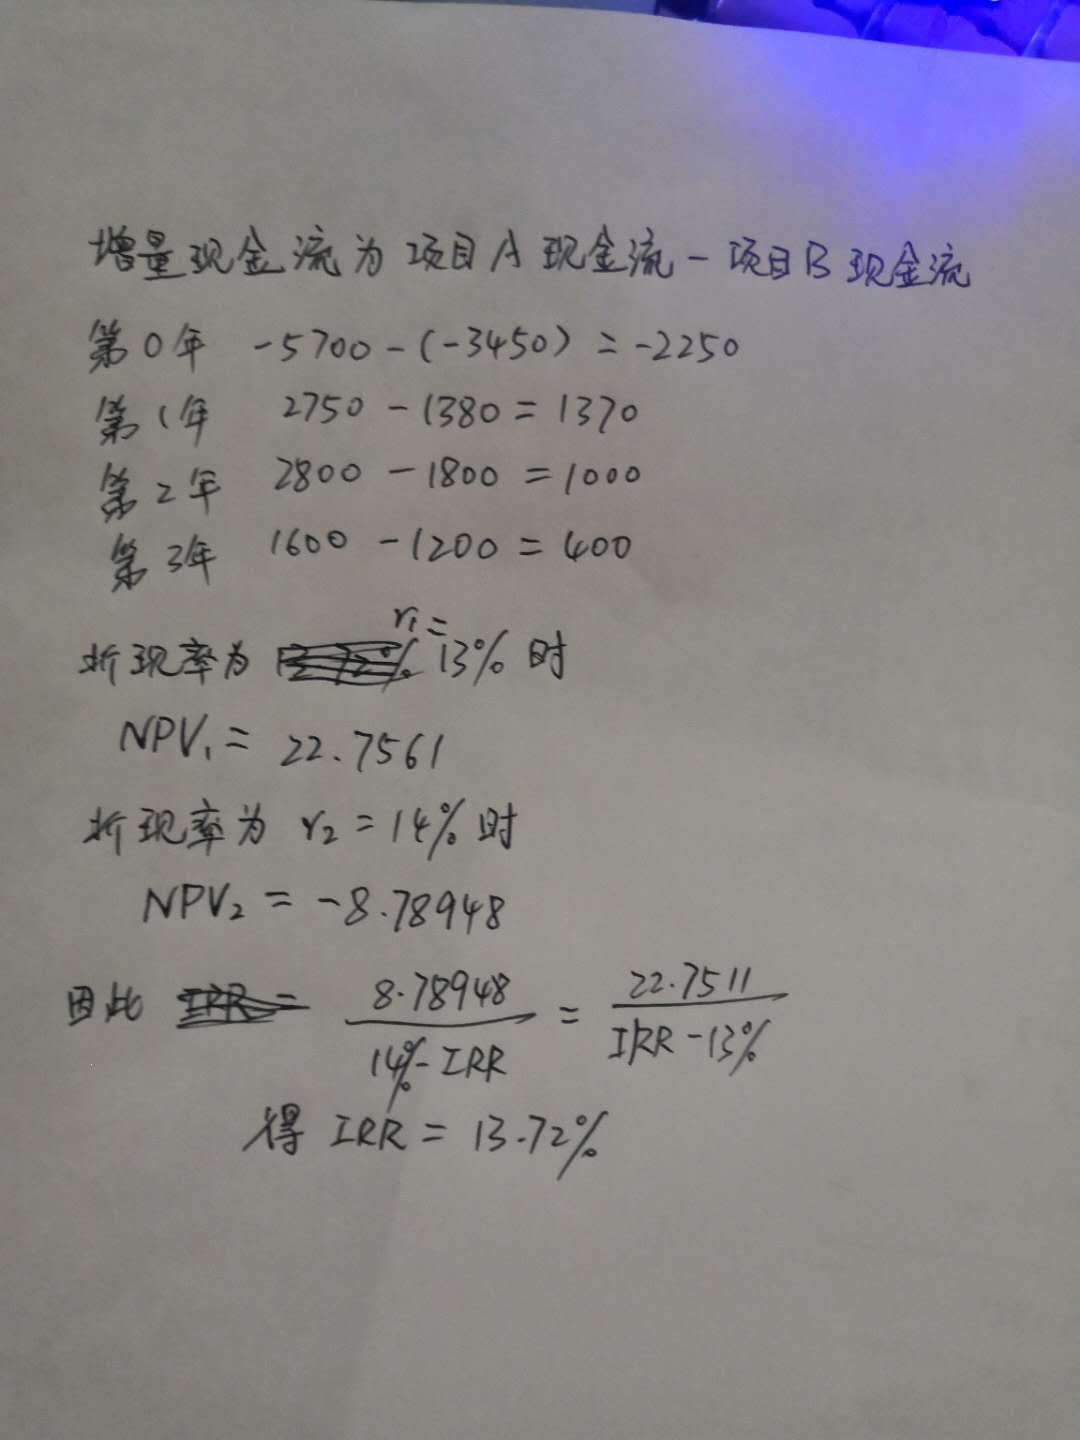 增量现金流为项目A现金流-项目B现金流
第0年 -5700-(-3450)=-2250
第1年 2750-1380=1370
第2年 2800-1800=1000
第3年 1600-1200=400
折现率为 r₁=13%时
NPV₁=22.7561
折现率为 r₂=14%时
NPV₂=-8.78948
因此 8.78948/(14%-IRR)=22.7511/(IRR-13%)
得 IRR=13.72%